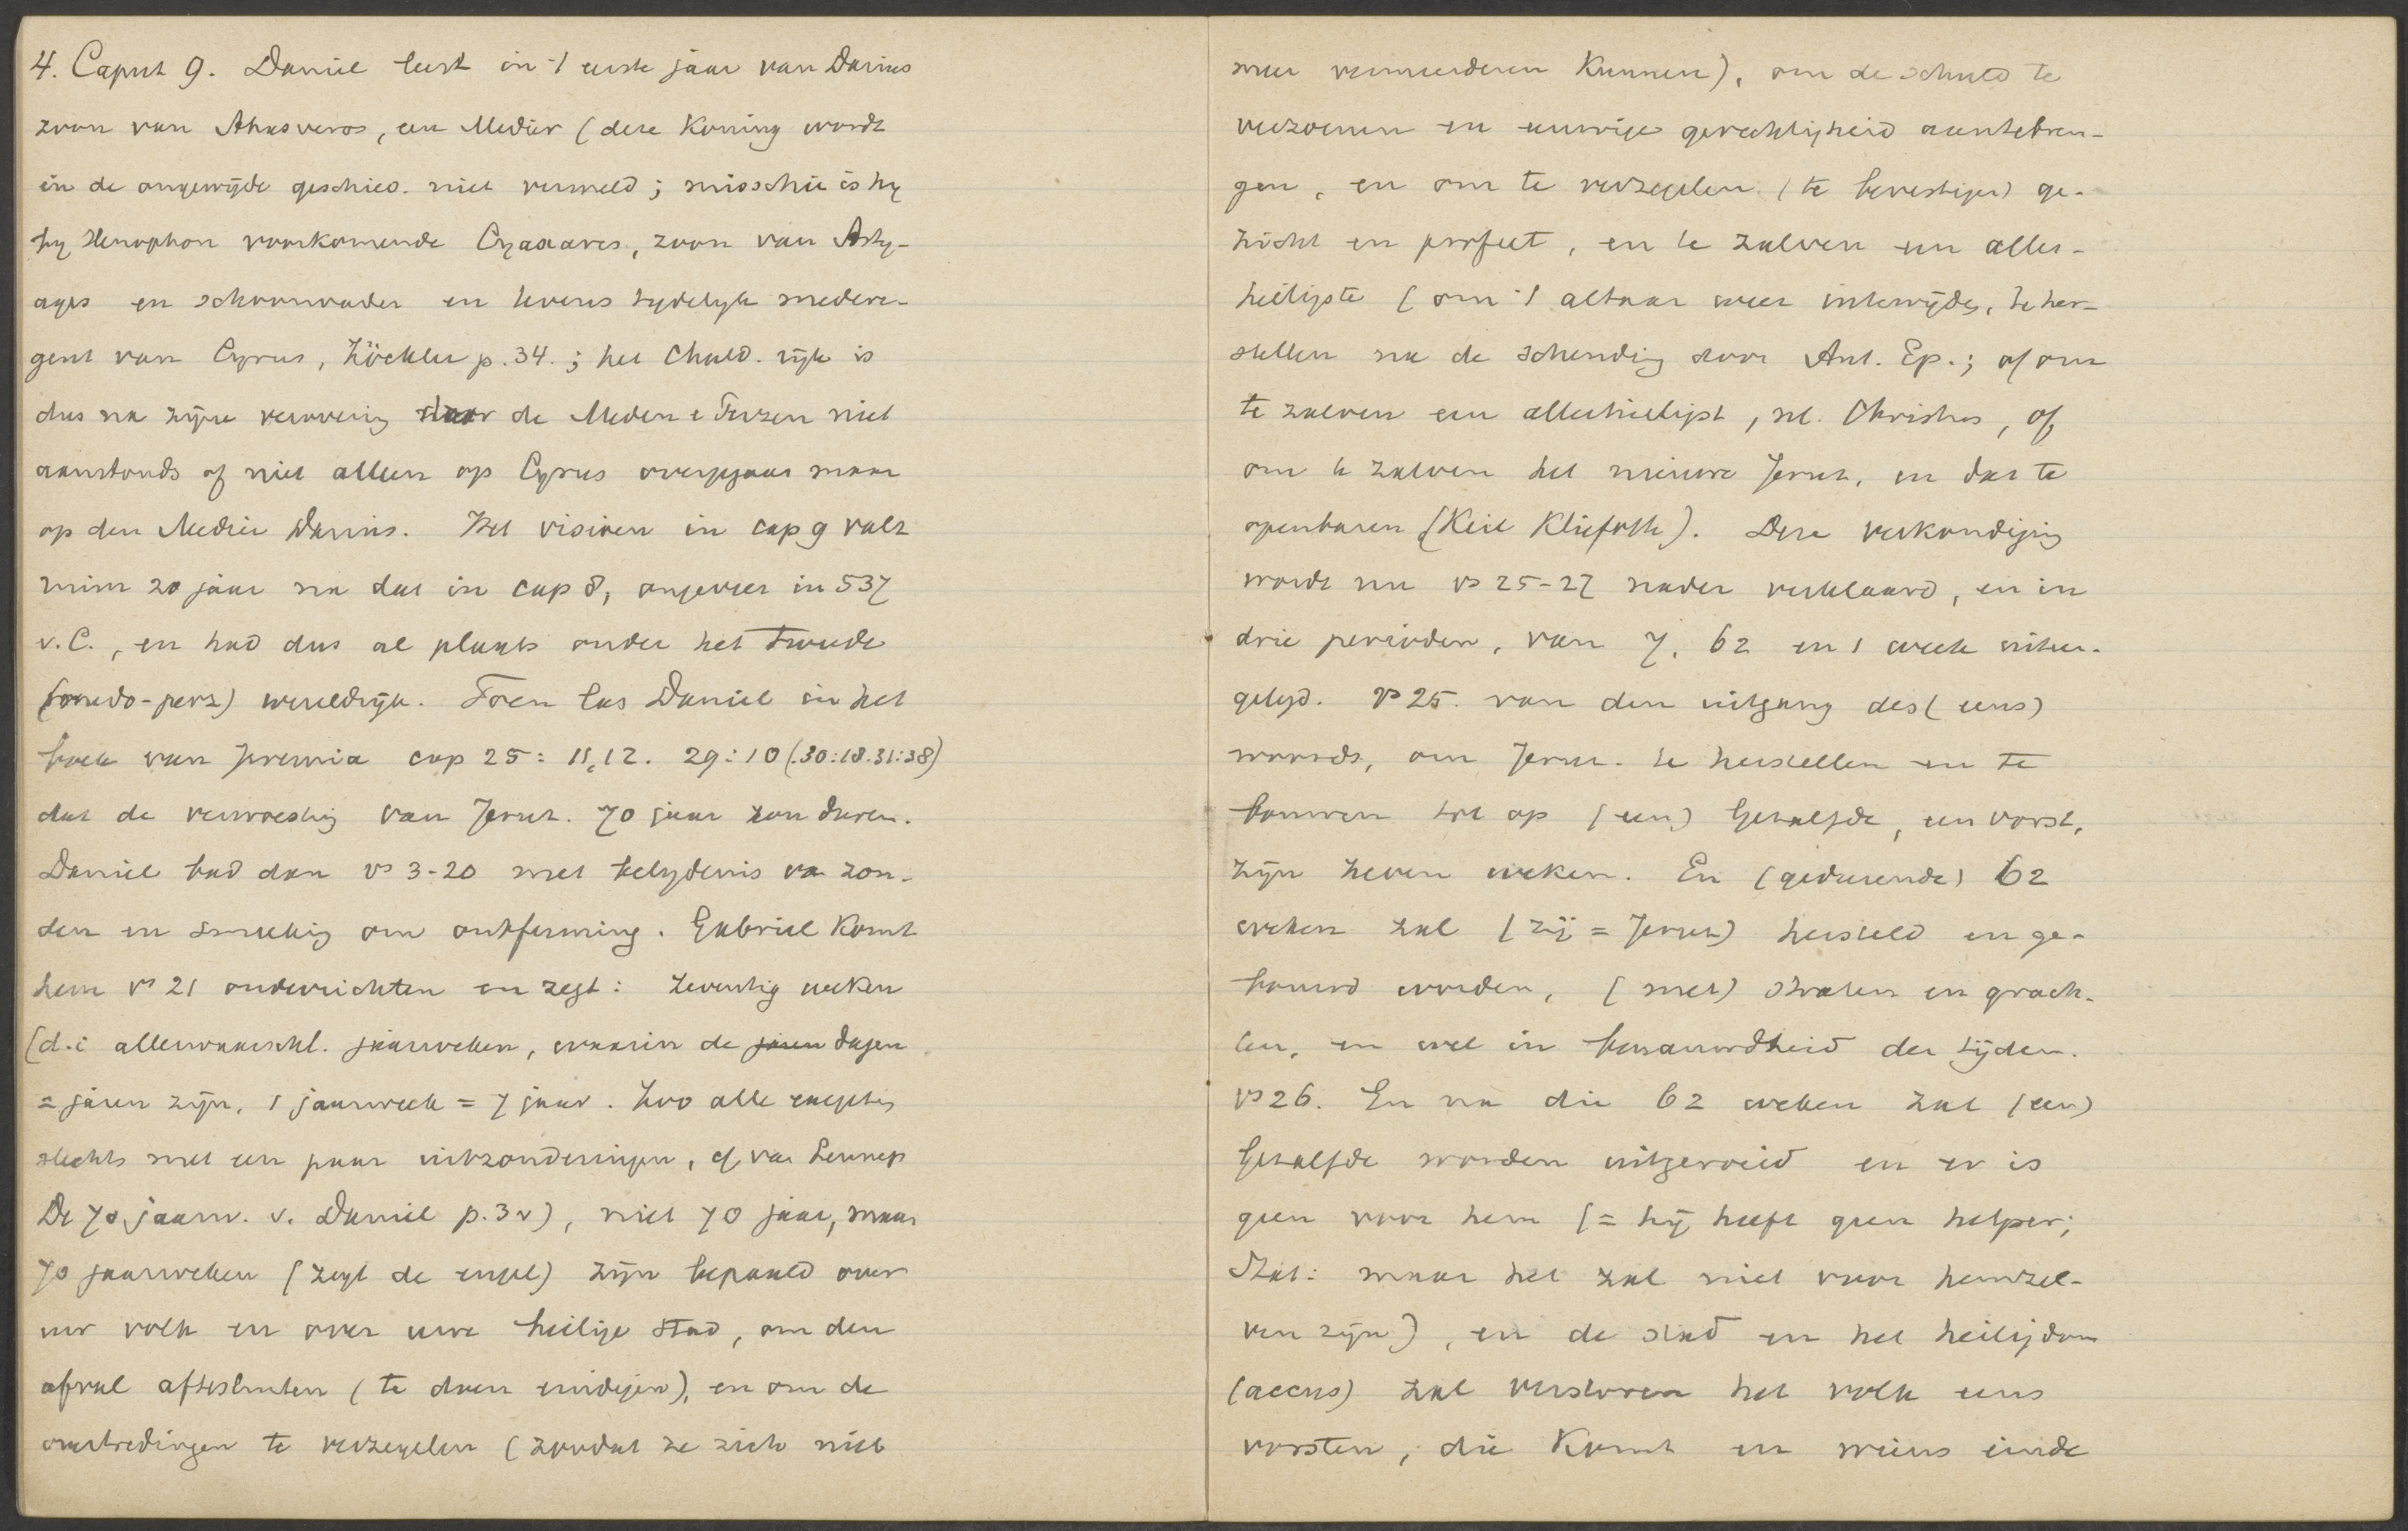 4. Caput 9. Daniel leest in 't eerste jaar van Darius
zoon van Ahasveros, een Mediër (deze Koning wordt
in de ongewijde geschied. niet vermeld; misschien is hy
by Xenophon voorkomende Cyaxares, zoon van Asty-
ages en schoonvader en tevens tydelyk medere-
gent van Cyrus, Zöckler p. 34.; het Chald. rijk is
dus na zijne verovering door de Meden e Perzen niet
aanstonds of niet alleen op Cyrus overgegaan maar
op den Mediër Darius. Het visioen in cap 9 valt
ruim 20 jaar na dat in cap 8, ongeveer in 537
v. C., en had dus al plaats onder het tweede
(medo-perz) wereldrijk. Toen las Daniel in het
boek van Jeremia cap 25: 11,12. 29:10 (.30:18.31:38)
dat de verwoesting van Jeruz. 70 jaar zou duren.
Daniel bad dan vs 3-20 met belydenis va zon-
den en smeeking om ontferming. Gabriel komt
hem vs 21 onderrichten en zegt: zeventig weken
(d.i allerwaarschl. jaarweken, waarin de jaren dagen
= jaren zijn, 1 jaarweek = 7 jaar. Zoo alle exegetes
slechts met een paar uitzonderingen, cf van Lennep
De 70 jaarw. v. Daniel p. 3 v), niet 70 jaar, maar
70 jaarweken (zegt de engel) zijn bepaald over
uw volk en over uwe heilige stad, om den
afval aftesluiten (te doen eindigen), en om de
overtredingen te verzegelen (zoodat ze zich niet
meer vermeerderen kunnen), om de schuld te
verzoenen en eeuwige gerechtigheid aantebren-
gen, en om te verzegelen (te bevestigen) ge-
zicht en profeet, en te zalven een aller-
heiligste (om 't altaar weer intewijden, te her-
stellen na de schending door Ant. Ep.; of om
te zalven een allerheiligst, nl. Christus, of,
om te zalven het nieuwe Jeruz, en dat te
openbaren (Keil Kliefoth). Deze verkondiging
wordt nu vs 25-27 nader verklaard, en in
drie perioden, van 7, 62 en 1 week uiteen-
gelegd. vs 25. van den uitgang des (eens)
woords, om Jeruz. te herstellen en te
bouwen tot op (een) Gezalfde, een vorst,
zijn zeven weken. En (gedurende) 62
weken zal (zij = Jeruz) hersteld en ge-
bouwd worden, (met) straten en grach-
ten, en wel in benauwdheid der tijden.
vs 26. En na die 62 weken zal (een)
Gezalfde worden uitgeroeid en er is
geen voor hem (= hij heeft geen helper;
Stat: maar het zal niet voor hemzel-
ven zijn), en de stad en het heiligdom
(accus) zal verstoren het volk eens
vorsten, die komt en wiens einde